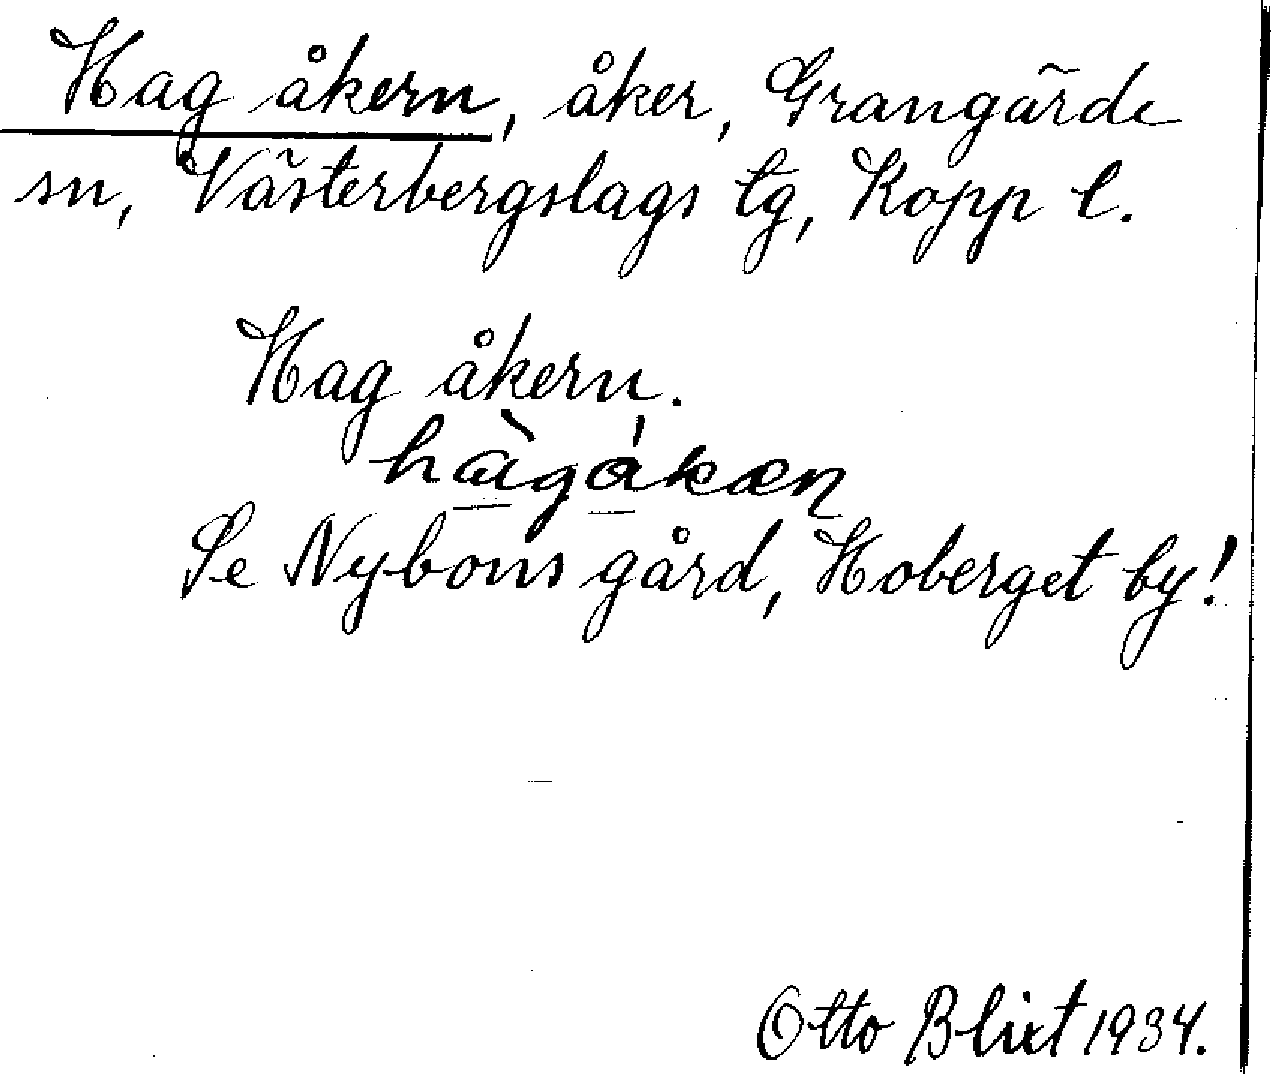 Hag åkern, åker, Grangärde
sn, Västerbergslags tg, Kopp l.
Hag åkern.
hàgákæn
Se Nybons gård, Hoberget by!
Otto Blixt 1934.